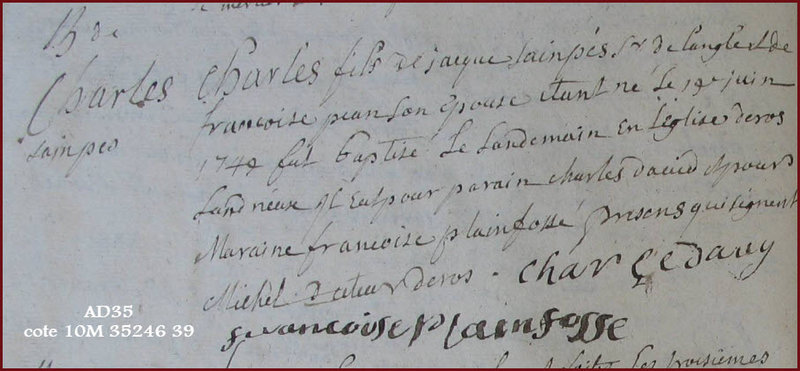 B de
Charles
sainpes
Charles fils de jacque sainpés Sr de langle et de
francoise pean son Epouse etant né le 19e juin
1749 fut baptisé le landemain en l'église de ros
Landrieux Il Eut pour parain charles david et pour
Maraine francoise plainfossé presens qui signent
Michel Recteur de ros .
Char le davy
francoise plainfosse
les troisiemes
AD35
cote 10M 35246 39